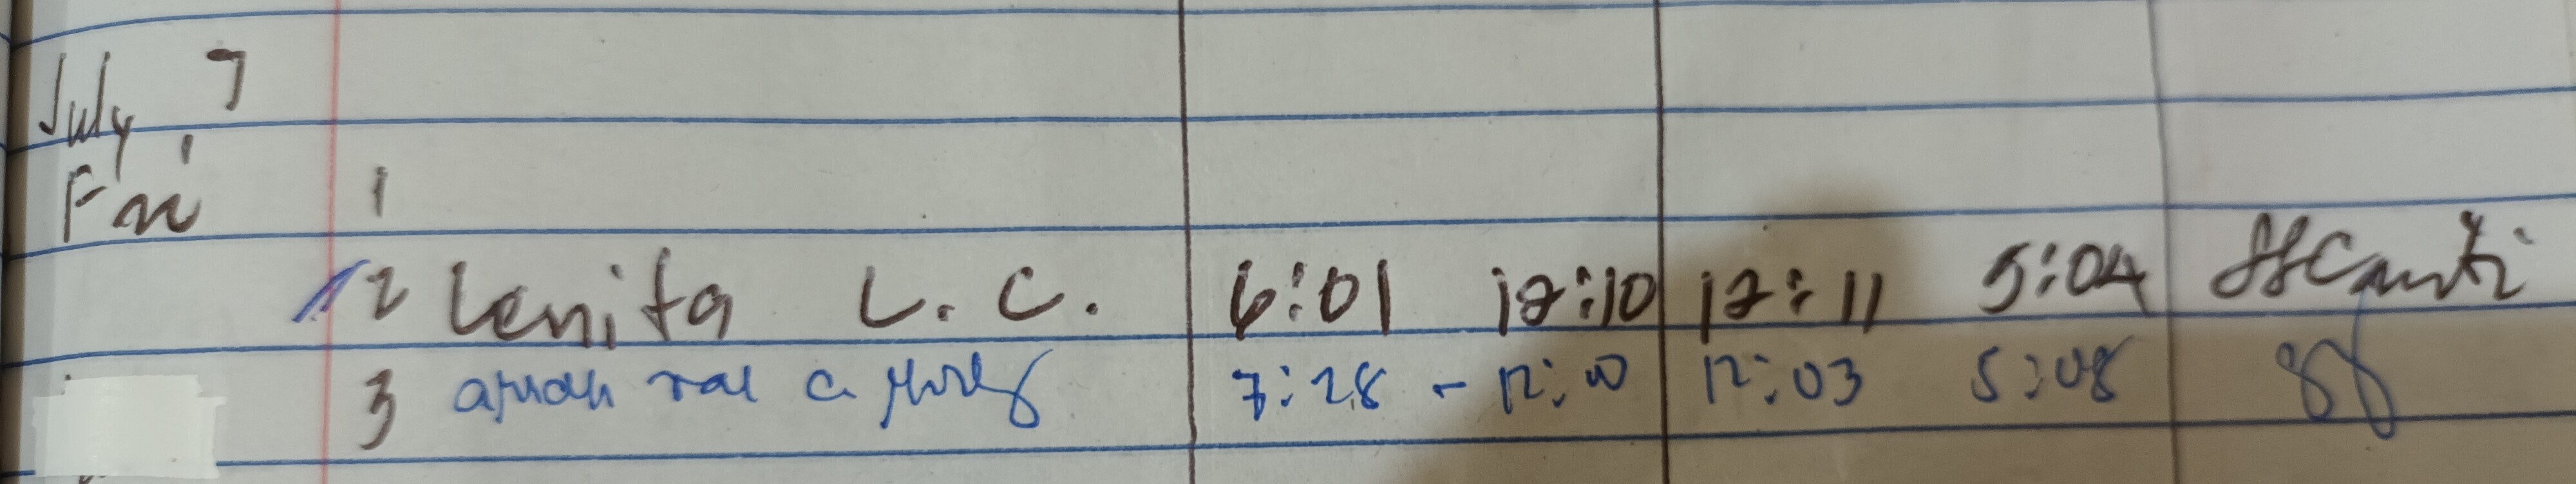 July 7
Fri 1
2 Lenita L. C. 6:01 12:10 12:11 5:04
3 rae c. 7:28 - 12:00 12:03 5:08